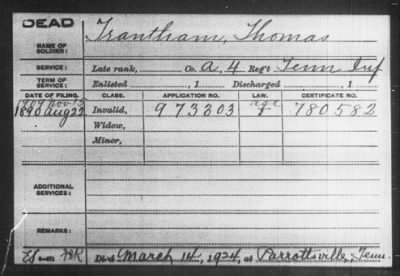 DEAD
NAME OF SOLDIER: Trantham, Thomas
SERVICE: Late rank, Co. A, 4 Reg't Tenn Inf
TERM OF SERVICE: Enlisted , 1 Discharged , 1
DATE OF FILING. CLASS. APPLICATION NO. LAW. CERTIFICATE NO.
1909 Nov 15 age
1890 Aug 22 Invalid, 973203 780582
Widow,
Minor,
ADDITIONAL SERVICES:
REMARKS:
Died March 14, 1924, at Parrottsville, Tenn.